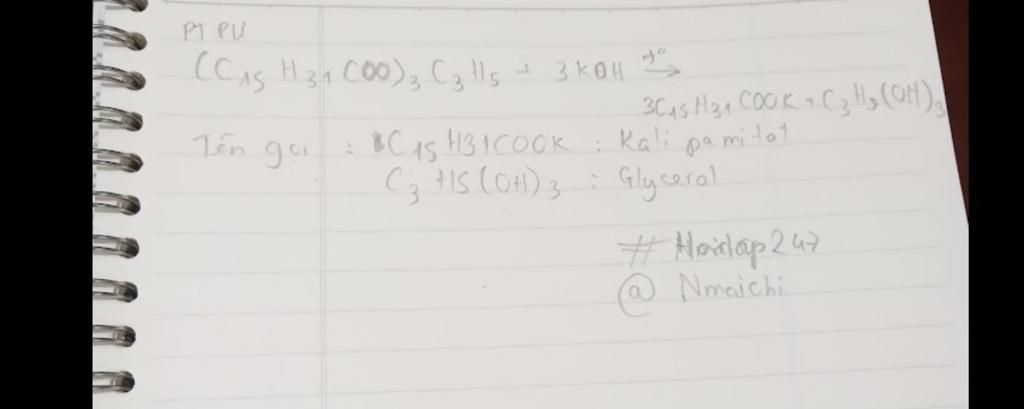 PT PƯ
(C15 H31 COO)3 C3 H5 + 3 KOH t° →
3C15 H31 COOK + C3 H5 (OH)3
Tên gọi : C15 H31COOK : Kali pamitat
C3 H5 (OH)3 : Glycerol
# Hoidap247
@ Nmaichi